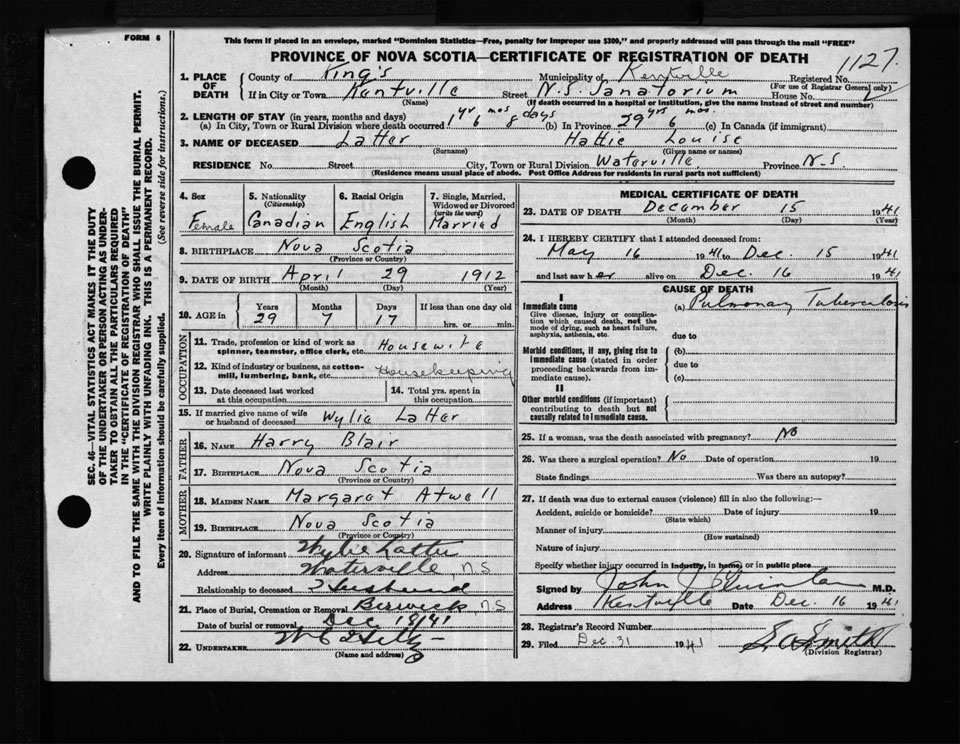 FORM 6
This form if placed in an envelope, marked "Dominion Statistics—Free, penalty for improper use $300," and properly addressed will pass through the mail "FREE"
PROVINCE OF NOVA SCOTIA—CERTIFICATE OF REGISTRATION OF DEATH
1127
1. PLACE OF DEATH County of King's Municipality of Kentville Registered No.
(For use of Registrar General only)
If in City or Town Kentville Street N.S. Sanatorium House No.
(Name) (If death occurred in a hospital or institution, give the name instead of street and number)
2. LENGTH OF STAY (in years, months and days)
(a) In City, Town or Rural Division where death occurred 1 yr 6 mos 8 days (b) In Province 29 yrs 6 mos. (c) In Canada (if immigrant)
3. NAME OF DECEASED Latter Hattie Louise
(Surname) (Given name or names)
RESIDENCE No. Street City, Town or Rural Division Waterville Province N.S.
(Residence means usual place of abode. Post Office Address for residents in rural parts not sufficient)
4. Sex Female
5. Nationality (Citizenship) Canadian
6. Racial Origin English
7. Single, Married, Widowed or Divorced (write the word) Married
8. BIRTHPLACE Nova Scotia
(Province or Country)
9. DATE OF BIRTH April 29 1912
(Month) (Day) (Year)
10. AGE in Years 29 Months 7 Days 17 If less than one day old hrs. or min.
OCCUPATION
11. Trade, profession or kind of work as spinner, teamster, office clerk, etc. Housewife
12. Kind of industry or business, as cotton-mill, lumbering, bank, etc. Housekeeping
13. Date deceased last worked at this occupation
14. Total yrs. spent in this occupation
15. If married give name of wife or husband of deceased Wylie Latter
FATHER
16. NAME Harry Blair
17. BIRTHPLACE Nova Scotia
(Province or Country)
MOTHER
18. MAIDEN NAME Margaret Atwell
19. BIRTHPLACE Nova Scotia
(Province or Country)
20. Signature of informant Wylie Latter
Address Waterville N.S
Relationship to deceased Husband
21. Place of Burial, Cremation or Removal Berwick N.S
Date of burial or removal Dec 18/41
22. UNDERTAKER
(Name and address)
MEDICAL CERTIFICATE OF DEATH
23. DATE OF DEATH December 15 1941
(Month) (Day) (Year)
24. I HEREBY CERTIFY that I attended deceased from:
May 16 1941 to Dec. 15 1941
and last saw her alive on Dec. 16 1941
CAUSE OF DEATH
I
Immediate cause (a) Pulmonary Tuberculosis
Give disease, injury or complication which caused death, not the mode of dying, such as heart failure, asphyxia, asthenia, etc.
due to
Morbid conditions, if any, giving rise to immediate cause (stated in order proceeding backwards from immediate cause).
(b)
due to
(c)
II
Other morbid conditions (if important) contributing to death but not causally related to immediate cause.
25. If a woman, was the death associated with pregnancy? No
26. Was there a surgical operation? No Date of operation 19
State findings Was there an autopsy?
27. If death was due to external causes (violence) fill in also the following:—
Accident, suicide or homicide? Date of injury 19
(State which)
Manner of injury
(How sustained)
Nature of injury
Specify whether injury occurred in industry, in home, or in public place
Signed by John J Quinlan M.D.
Address Kentville Date Dec. 16 1941
28. Registrar's Record Number
29. Filed Dec. 31 1941 Smith
(Division Registrar)
SEC. 46—VITAL STATISTICS ACT MAKES IT THE DUTY
OF THE UNDERTAKER OR PERSON ACTING AS UNDER-
TAKER TO OBTAIN ALL THE PARTICULARS REQUIRED
IN THE "CERTIFICATE OF REGISTRATION OF DEATH"
AND TO FILE THE SAME WITH THE DIVISION REGISTRAR WHO SHALL ISSUE THE BURIAL PERMIT.
WRITE PLAINLY WITH UNFADING INK. THIS IS A PERMANENT RECORD.
Every item of information should be carefully supplied. (See reverse side for instructions.)